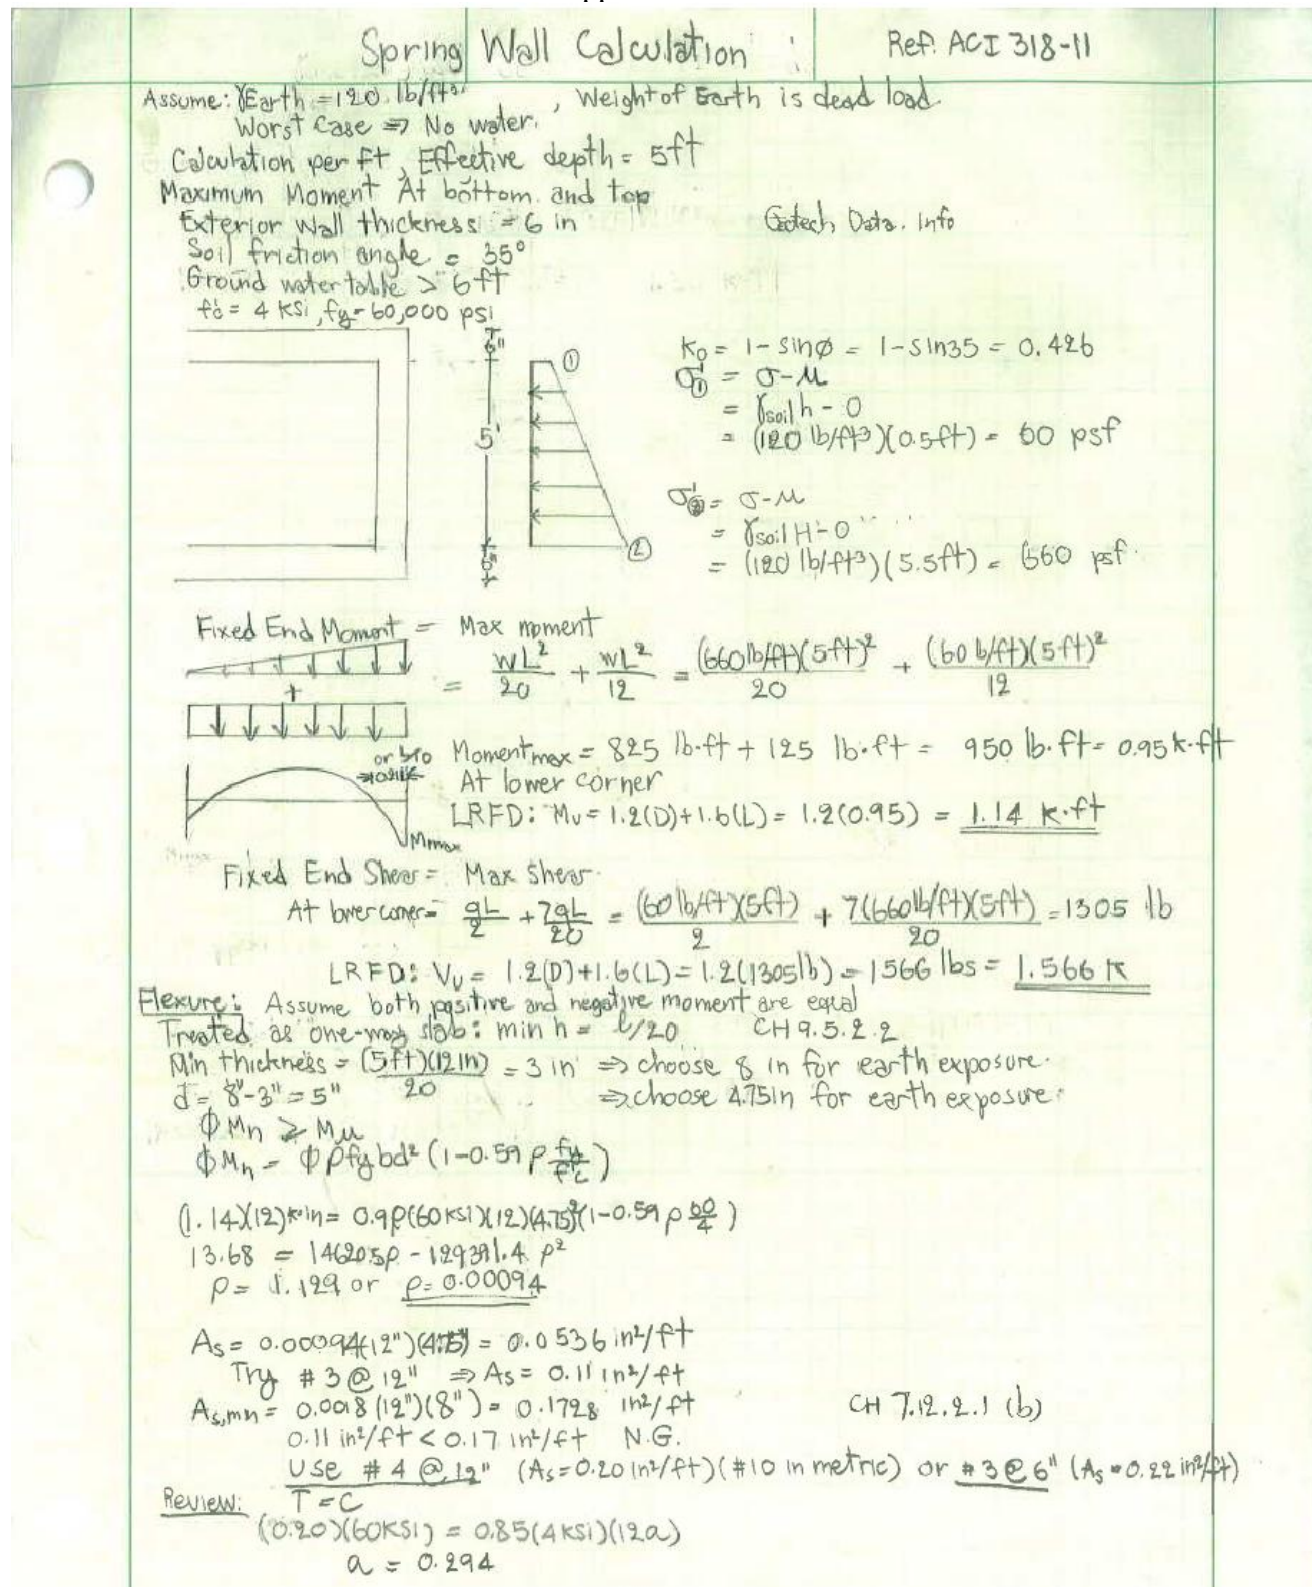 Spring Wall Calculation : Ref: ACI 318-11
Assume: γEarth = 120 lb/ft³, Weight of Earth is dead load.
Worst Case ⇒ No water.
Calculation per ft, Effective depth = 5ft
Maximum Moment At bottom and top
Exterior Wall thickness = 6 in
Geotech Data. Info
Soil friction angle = 35°
Ground water table > 6ft
f'c = 4 ksi, fy = 60,000 psi
6"
5'
6"
①
②
K₀ = 1 - sinø = 1 - sin35 = 0.426
σ'① = σ - μ
= γsoil h - 0
= (120 lb/ft³)(0.5ft) = 60 psf
σ'② = σ - μ
= γsoil H - 0
= (120 lb/ft³)(5.5ft) = 660 psf.
Fixed End Moment = Max moment
= WL²/20 + WL²/12 = (660 lb/ft)(5ft)²/20 + (60 lb/ft)(5ft)²/12
+
Moment max = 825 lb·ft + 125 lb·ft = 950 lb·ft = 0.95 k·ft
At lower corner
LRFD: Mu = 1.2(D)+1.6(L) = 1.2(0.95) = 1.14 k·ft
Mmax
Fixed End Shear = Max Shear.
At lower corner = qL/2 + 7qL/20 = (60 lb/ft)(5ft)/2 + 7(660 lb/ft)(5ft)/20 = 1305 lb
LRFD: Vu = 1.2(D)+1.6(L) = 1.2(1305lb) = 1566 lbs = 1.566 K
Flexure: Assume both positive and negative moment are equal
Treated as one-way slab: min h = l/20 CH 9.5.2.2
Min thickness = (5ft)(12in)/20 = 3 in ⇒ choose 8 in for earth exposure.
d = 8"-3" = 5" ⇒ choose 4.75in for earth exposure.
ΦMn ≥ Mu
ΦMn = Φρfybd²(1-0.59ρ fy/f'c)
(1.14)(12)k·in = 0.9ρ(60ksi)(12)(4.75)²(1-0.59ρ 60/4)
13.68 = 14620.5ρ - 129391.4 ρ²
ρ = 1.129 or ρ = 0.00094
As = 0.00094(12")(4.75") = 0.0536 in²/ft
Try #3 @ 12" ⇒ As = 0.11 in²/ft
As,mn = 0.0018 (12")(8") = 0.1728 in²/ft CH 7.12.2.1 (b)
0.11 in²/ft < 0.17 in²/ft N.G.
Use #4 @ 12" (As = 0.20 in²/ft)(#10 in metric) or #3 @ 6" (As = 0.22 in²/ft)
Review: T = C
(0.20)(60KSI) = 0.85(4KSI)(12a)
a = 0.294